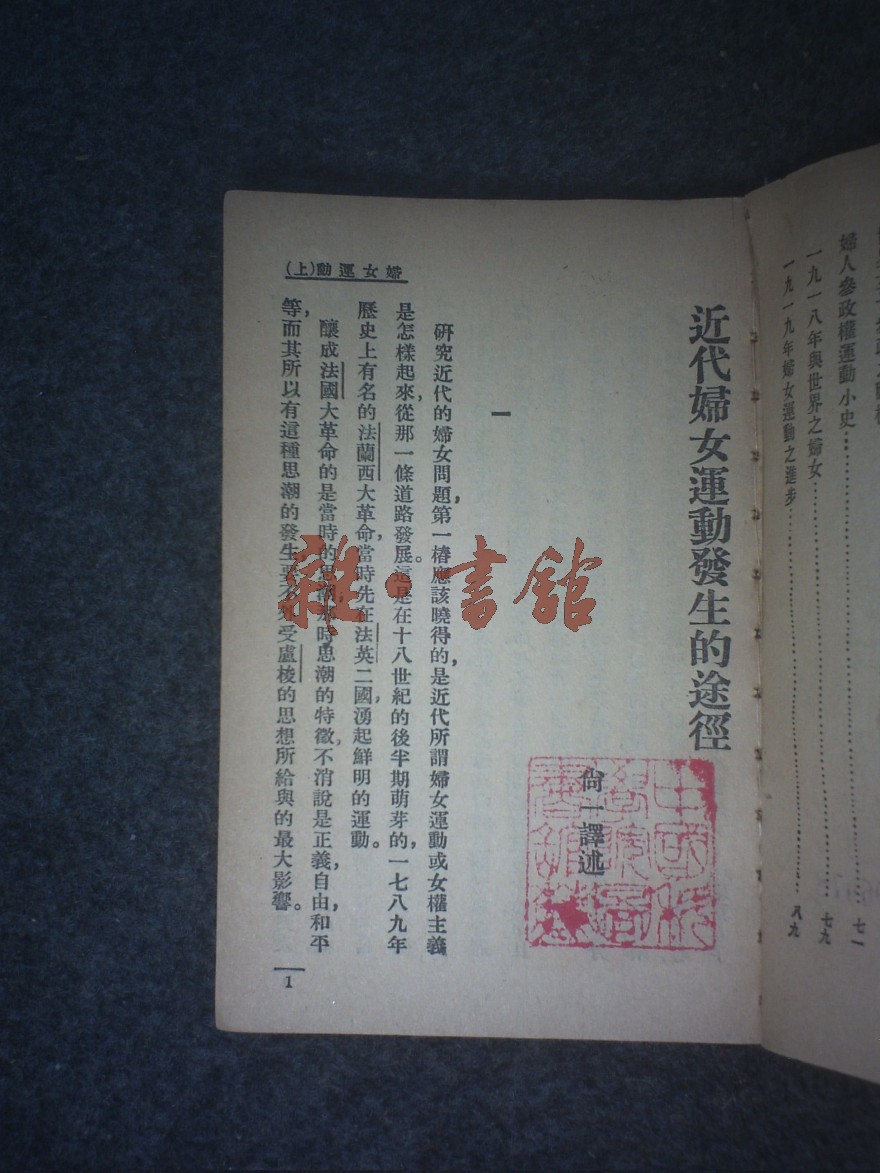 婦人參政權運動小史……七一
一九一八年與世界之婦女……七九
一九一九年婦女運動之進步……八九
近代婦女運動發生的途徑
尙一譯述
一
研究近代的婦女問題,第一樁應該曉得的,是近代所謂婦女運動或女權主義
是怎樣起來,從那一條道路發展。這是在十八世紀的後半期萌芽的,一七八九年
歷史上有名的法蘭西大革命,當時先在法英二國湧起鮮明的運動。
釀成法國大革命的是當時的思潮,那時思潮的特徵,不消說是正義,自由,和平
等,而其所以有這種思潮的發生,要不外受盧梭的思想所給與的最大影響。
婦女運動(上)
1
雜·書館